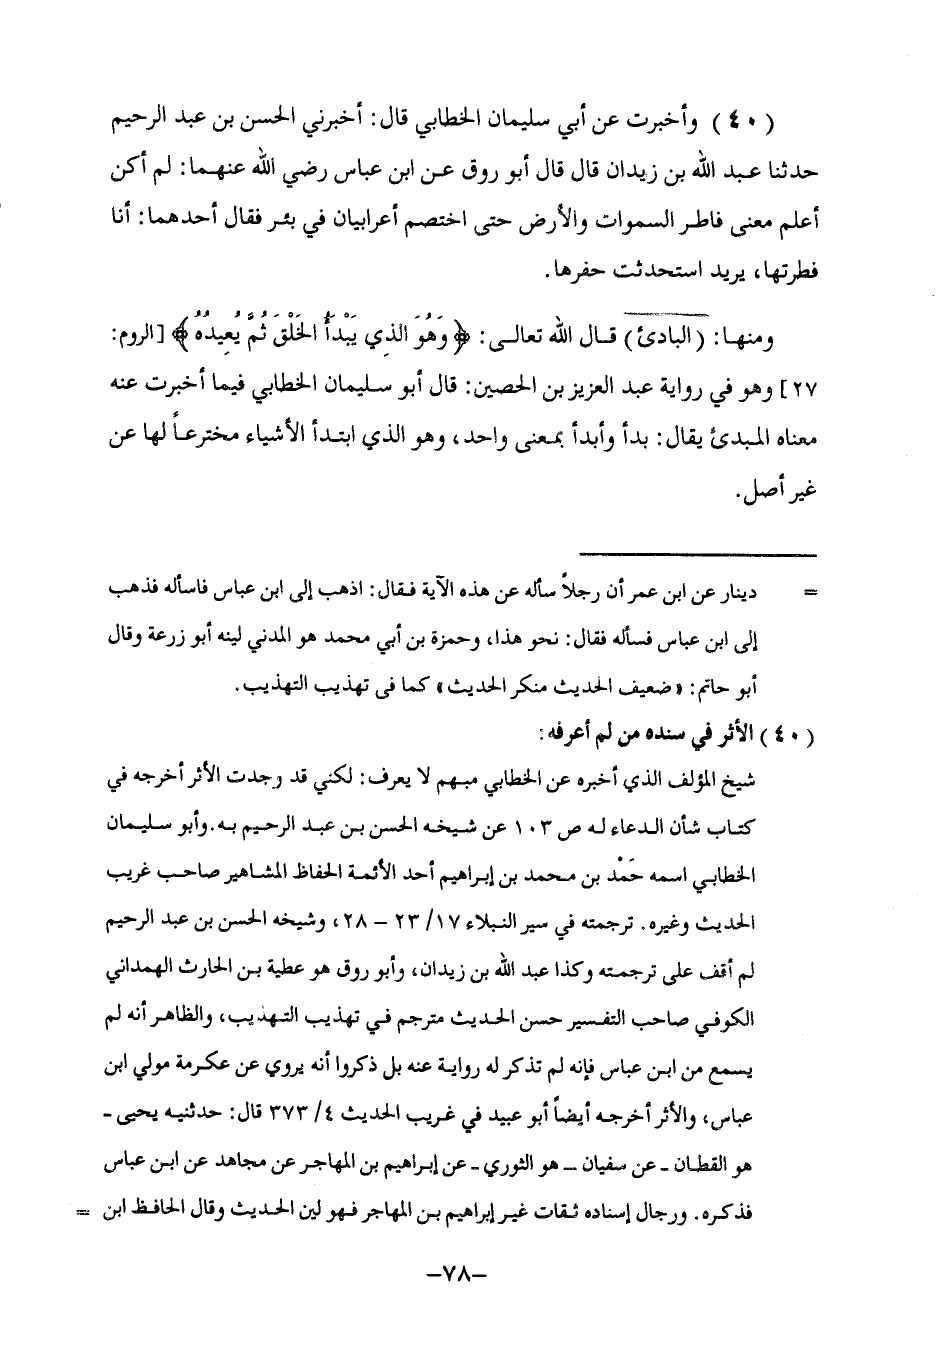 (٤٠) وأخبرت عن أبي سليمان الخطابي قال: أخبرني الحسن بن عبد الرحيم
حدثنا عبد الله بن زيدان قال قال أبو روق عن ابن عباس رضي الله عنهما: لم أكن
أعلم معنى فاطر السموات والأرض حتى اختصم أعرابيان في بئر فقال أحدهما: أنا
فطرتها، يريد استحدثت حفرها.
ومنها: (البادئ) قال الله تعالى: ﴿وَهُوَ الذي يَبْدَأُ الخَلْقَ ثُمَّ يُعيدُهُ﴾ [الروم:
٢٧] وهو في رواية عبد العزيز بن الحصين: قال أبو سليمان الخطابي فيما أخبرت عنه
معناه المبدئ يقال: بدأ وأبدأ بمعنى واحد، وهو الذي ابتدأ الأشياء مخترعاً لها عن
غير أصل.
= دينار عن ابن عمر أن رجلاً سأله عن هذه الآية فقال: اذهب إلى ابن عباس فاسأله فذهب
إلى ابن عباس فسأله فقال: نحو هذا، وحمزة بن أبي محمد هو المدني لينه أبو زرعة وقال
أبو حاتم: «ضعيف الحديث منكر الحديث» كما في تهذيب التهذيب.
(٤٠) الأثر في سنده من لم أعرفه:
شيخ المؤلف الذي أخبره عن الخطابي مبهم لا يعرف: لكني قد وجدت الأثر أخرجه في
كتاب شأن الدعاء له ص ١٠٣ عن شيخه الحسن بن عبد الرحيم به. وأبو سليمان
الخطابي اسمه حَمْد بن محمد بن إبراهيم أحد الأئمة الحفاظ المشاهير صاحب غريب
الحديث وغيره. ترجمته في سير النبلاء ١٧/ ٢٣ – ٢٨، وشيخه الحسن بن عبد الرحيم
لم أقف على ترجمته وكذا عبد الله بن زيدان، وأبو روق هو عطية بن الحارث الهمداني
الكوفي صاحب التفسير حسن الحديث مترجم في تهذيب التهذيب، والظاهر أنه لم
يسمع من ابن عباس فإنه لم تذكر له رواية عنه بل ذكروا أنه يروي عن عكرمة مولي ابن
عباس، والأثر أخرجه أيضاً أبو عبيد في غريب الحديث ٤/ ٣٧٣ قال: حدثنيه يحيى -
هو القطان - عن سفيان – هو الثوري - عن إبراهيم بن المهاجر عن مجاهد عن ابن عباس
فذكره. ورجال إسناده ثقات غير إبراهيم بن المهاجر فهو لين الحديث وقال الحافظ ابن =
–٧٨–